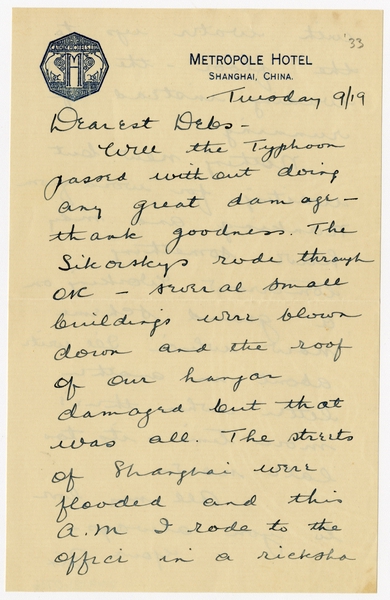 '33
METROPOLE HOTEL
SHANGHAI, CHINA.
Tuesday 9/19
Dearest Debs-
Well the Typhoon
passed without doing
any great damage-
thank goodness. The
Sikorskys rode through
OK - several small
buildings were blown
down and the roof
of our hangar
damaged but that
was all. The streets
of Shanghai were
flooded and this
A.M I rode to the
offici in a ricksha